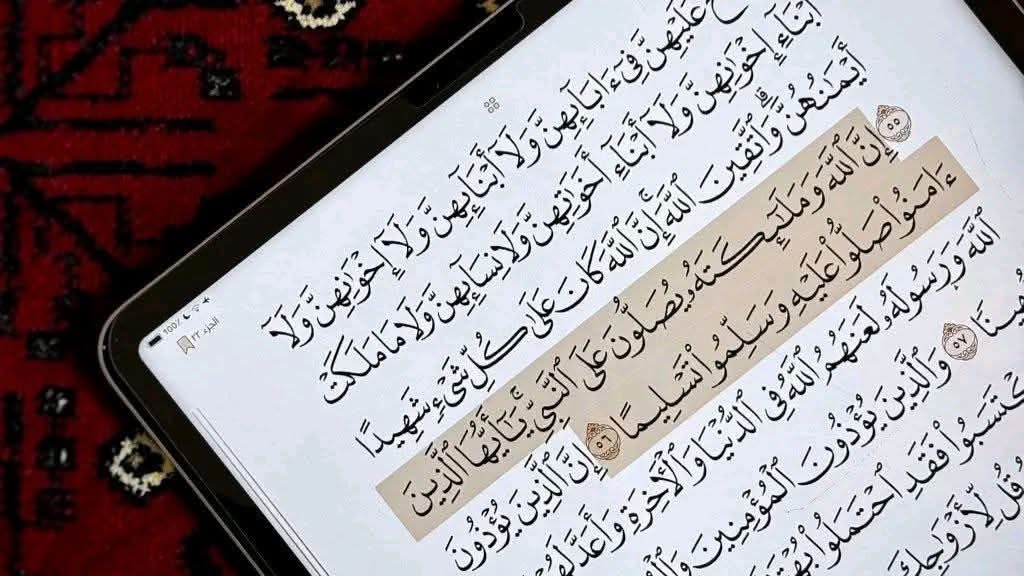 عَلَيْهِنَّ فِىٓ ءَابَآئِهِنَّ وَلَآ أَبْنَآئِهِنَّ وَلَآ إِخْوَٰنِهِنَّ وَلَآ
أَبْنَآءِ إِخْوَٰنِهِنَّ وَلَآ أَبْنَآءِ أَخَوَٰتِهِنَّ وَلَا نِسَآئِهِنَّ وَلَا مَا مَلَكَتْ
أَيْمَٰنُهُنَّ ۗ وَٱتَّقِينَ ٱللَّهَ ۚ إِنَّ ٱللَّهَ كَانَ عَلَىٰ كُلِّ شَىْءٍ شَهِيدًا
٥٥ إِنَّ ٱللَّهَ وَمَلَٰٓئِكَتَهُۥ يُصَلُّونَ عَلَى ٱلنَّبِىِّ ۚ يَٰٓأَيُّهَا ٱلَّذِينَ
ءَامَنُوا۟ صَلُّوا۟ عَلَيْهِ وَسَلِّمُوا۟ تَسْلِيمًا ٥٦ إِنَّ ٱلَّذِينَ يُؤْذُونَ
ٱللَّهَ وَرَسُولَهُۥ لَعَنَهُمُ ٱللَّهُ فِى ٱلدُّنْيَا وَٱلْءَاخِرَةِ وَأَعَدَّ لَهُمْ
مُّهِينًا ٥٧ وَٱلَّذِينَ يُؤْذُونَ ٱلْمُؤْمِنِينَ
ٱكْتَسَبُوا۟ فَقَدِ ٱحْتَمَلُوا۟
قُل لِّأَزْوَٰجِكَ
الجزء ٢٢
100٪